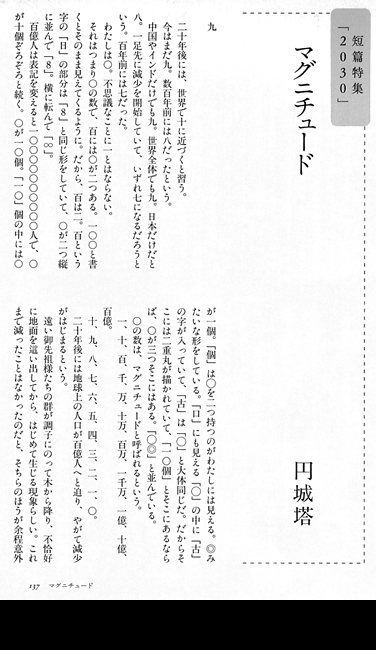 短篇特集
「2030」
マグニチュード
円城塔
九
二十年後には、世界で十に近づくと習う。
今はまだ九。数百年前には八だったという。
中国やインドだけでも九。世界全体でも九。日本だけだと
八。一足先に減少を開始していて、いずれ七になるだろうと
いう。百年前には七だった。
わたしは〇。不思議なことに一とはならない。
それはつまり〇の数で、百には〇が二つある。一〇〇と書
くとそのまま見えてくるように。だから、百は二。百という
字の「日」の部分は「8」と同じ形をしていて、〇が二つ縦
に並んで「8」。横に転んで「∞」。
百億人は表記を変えると一〇〇〇〇〇〇〇〇〇〇人で、〇
が十個ぞろぞろと続く。〇が一〇個。「一〇」個の中には〇
が一個。「個」は〇を二つ持つのがわたしには見える。◎み
たいな形をしている。「口」にも見える「〇」の中に「古」
の字が入っていて、「古」は「〇」と大体同じだ。だからそ
こには二重丸が描かれていて、「一〇個」とそこにあるなら
ば、〇が三つそこにはある。「〇◎」と並んでいる。
〇の数は、マグニチュードと呼ばれるという。
一、十、百、千、万、十万、百万、一千万、一億、十億、
百億。
十、九、八、七、六、五、四、三、二、一、〇。
二十年後には地球上の人口が百億人へと迫り、やがて減少
がはじまるという。
遠い御先祖様たちの群が調子にのって木から降り、不恰好
に地面を這い出してから、はじめて生じる現象らしい。これ
まで減ったことはなかったのだと、そちらのほうが余程意外
137 マグニチュード